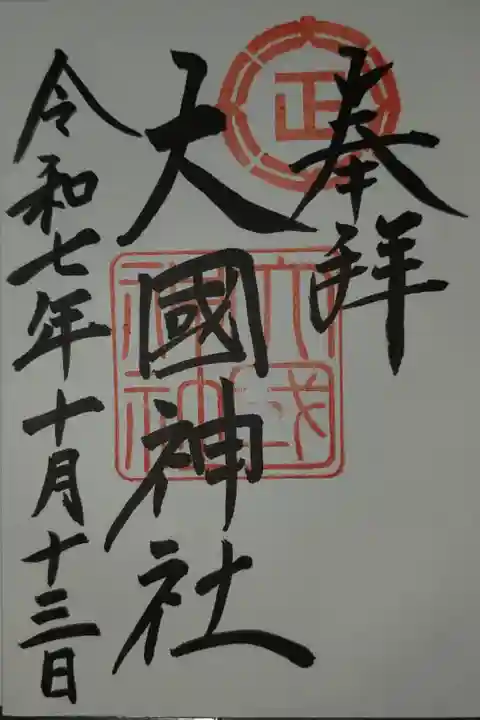 奉拝
正
大國神社
大國神社
令和七年十月十三日